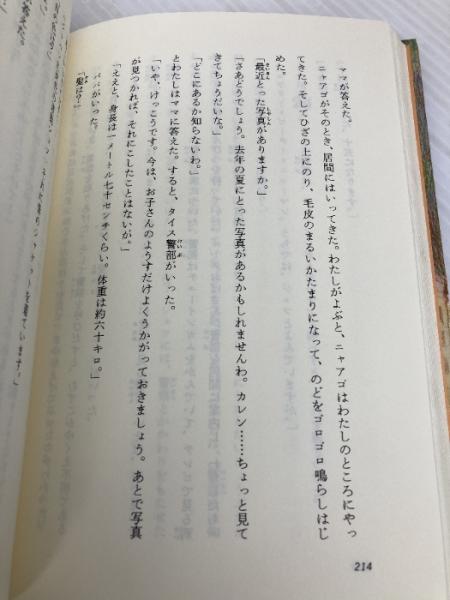 ママが答えた。
ニャアゴがそのとき、居間にはいってきた。わたしがよぶと、ニャアゴはわたしのところにやっ
てきた。そしてひざの上にのり、毛皮のまるいかたまりになって、のどをゴロゴロ鳴らしはじ
めた。
「最近とった写真がありますか。」
「さあどうでしょう。去年の夏にとった写真があるかもしれませんわ。カレン……ちょっと見て
きてちょうだいな。」
「どこにあるか知らないわ。」
とわたしはママに答えた。すると、タイス警部がいった。
「いや、けっこうです。今は、お子さんのようすだけよくうかがっておきましょう。あとで写真
が見つかれば、それにこしたことはないが。」
「ええと、身長は一メートル七十センチくらい。体重は約六十キロ。」
パパがいった。
「髪は？」
214